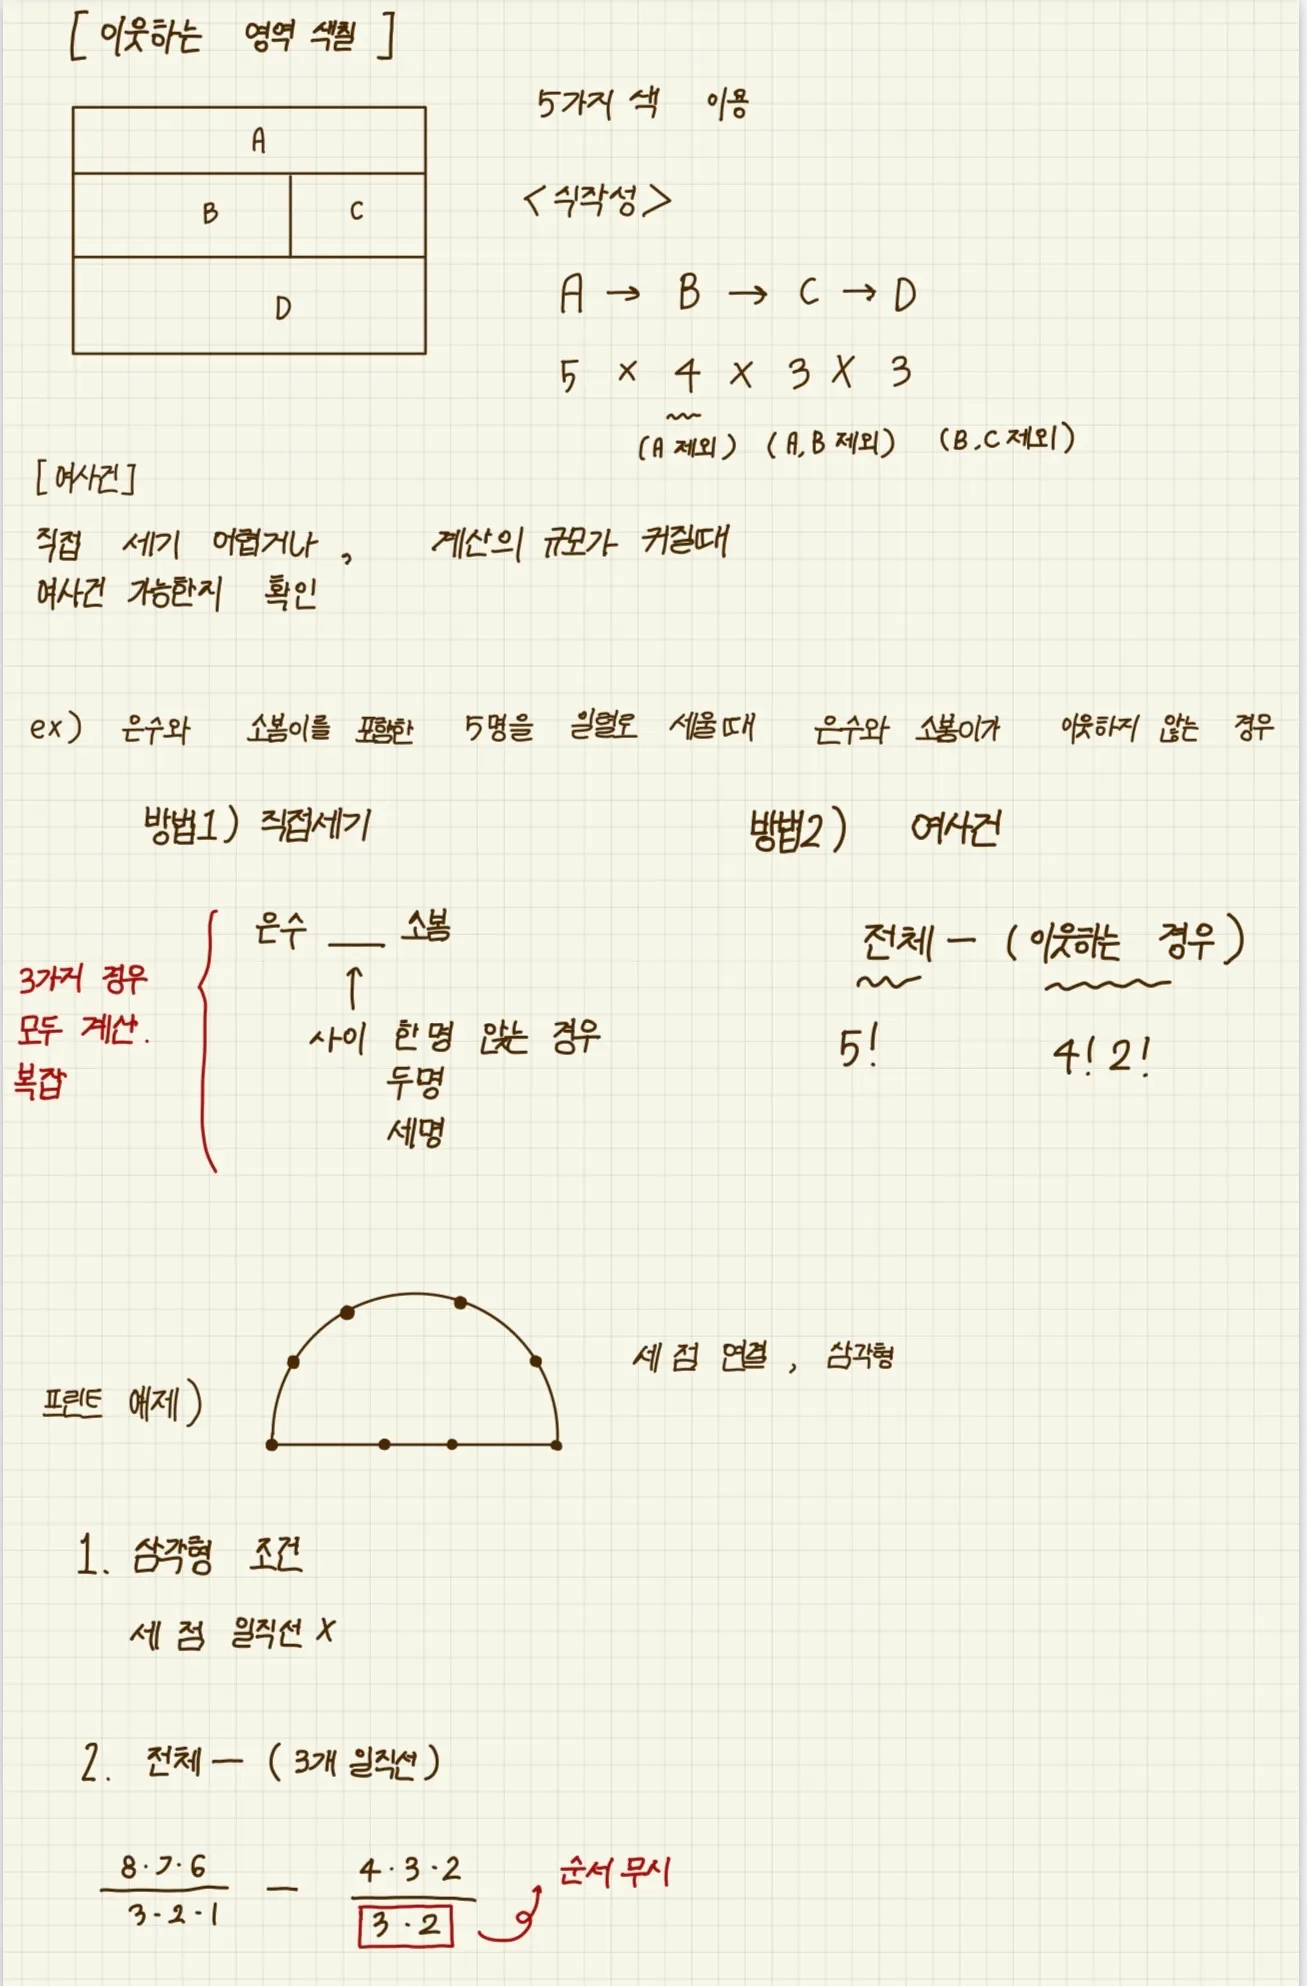 [ 이웃하는 영역 색칠 ]
5가지 색 이용
A
B C
D
<식작성>
A → B → C → D
5 × 4 × 3 × 3
(A 제외) (A, B 제외) (B, C 제외)
[여사건]
직접 세기 어렵거나, 계산의 규모가 커질때
여사건 가능한지 확인
ex) 은수와 소봄이를 포함한 5명을 일렬로 세울때 은수와 소봄이가 이웃하지 않는 경우
방법1) 직접세기
은수 __ 소봄
↑
사이 한명 앉는 경우
두명
세명
3가지 경우
모두 계산.
복잡
방법2) 여사건
전체 - (이웃하는 경우)
5! 4! 2!
프린트 예제)
세 점 연결, 삼각형
1. 삼각형 조건
세 점 일직선 X
2. 전체 - ( 3개 일직선 )
8·7·6 — 4·3·2
3·2·1 3·2
순서 무시